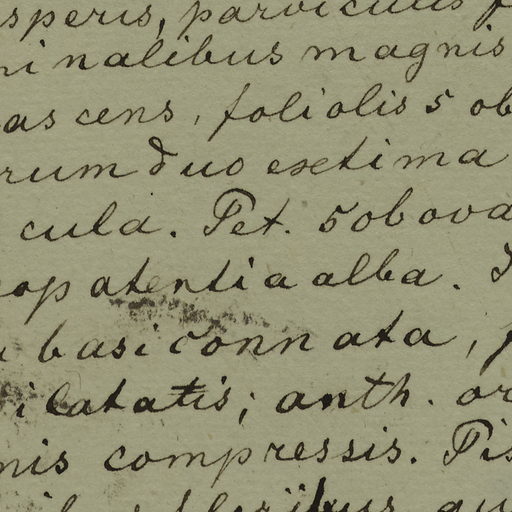 speris, parviculis
nalibus magnis
ascens, foliolis 5 ob
rum duo extima
cula. Pet. 5 obova
patentia alba.
basi connata,
ilatatis; anth. or
nis compressis. Pis